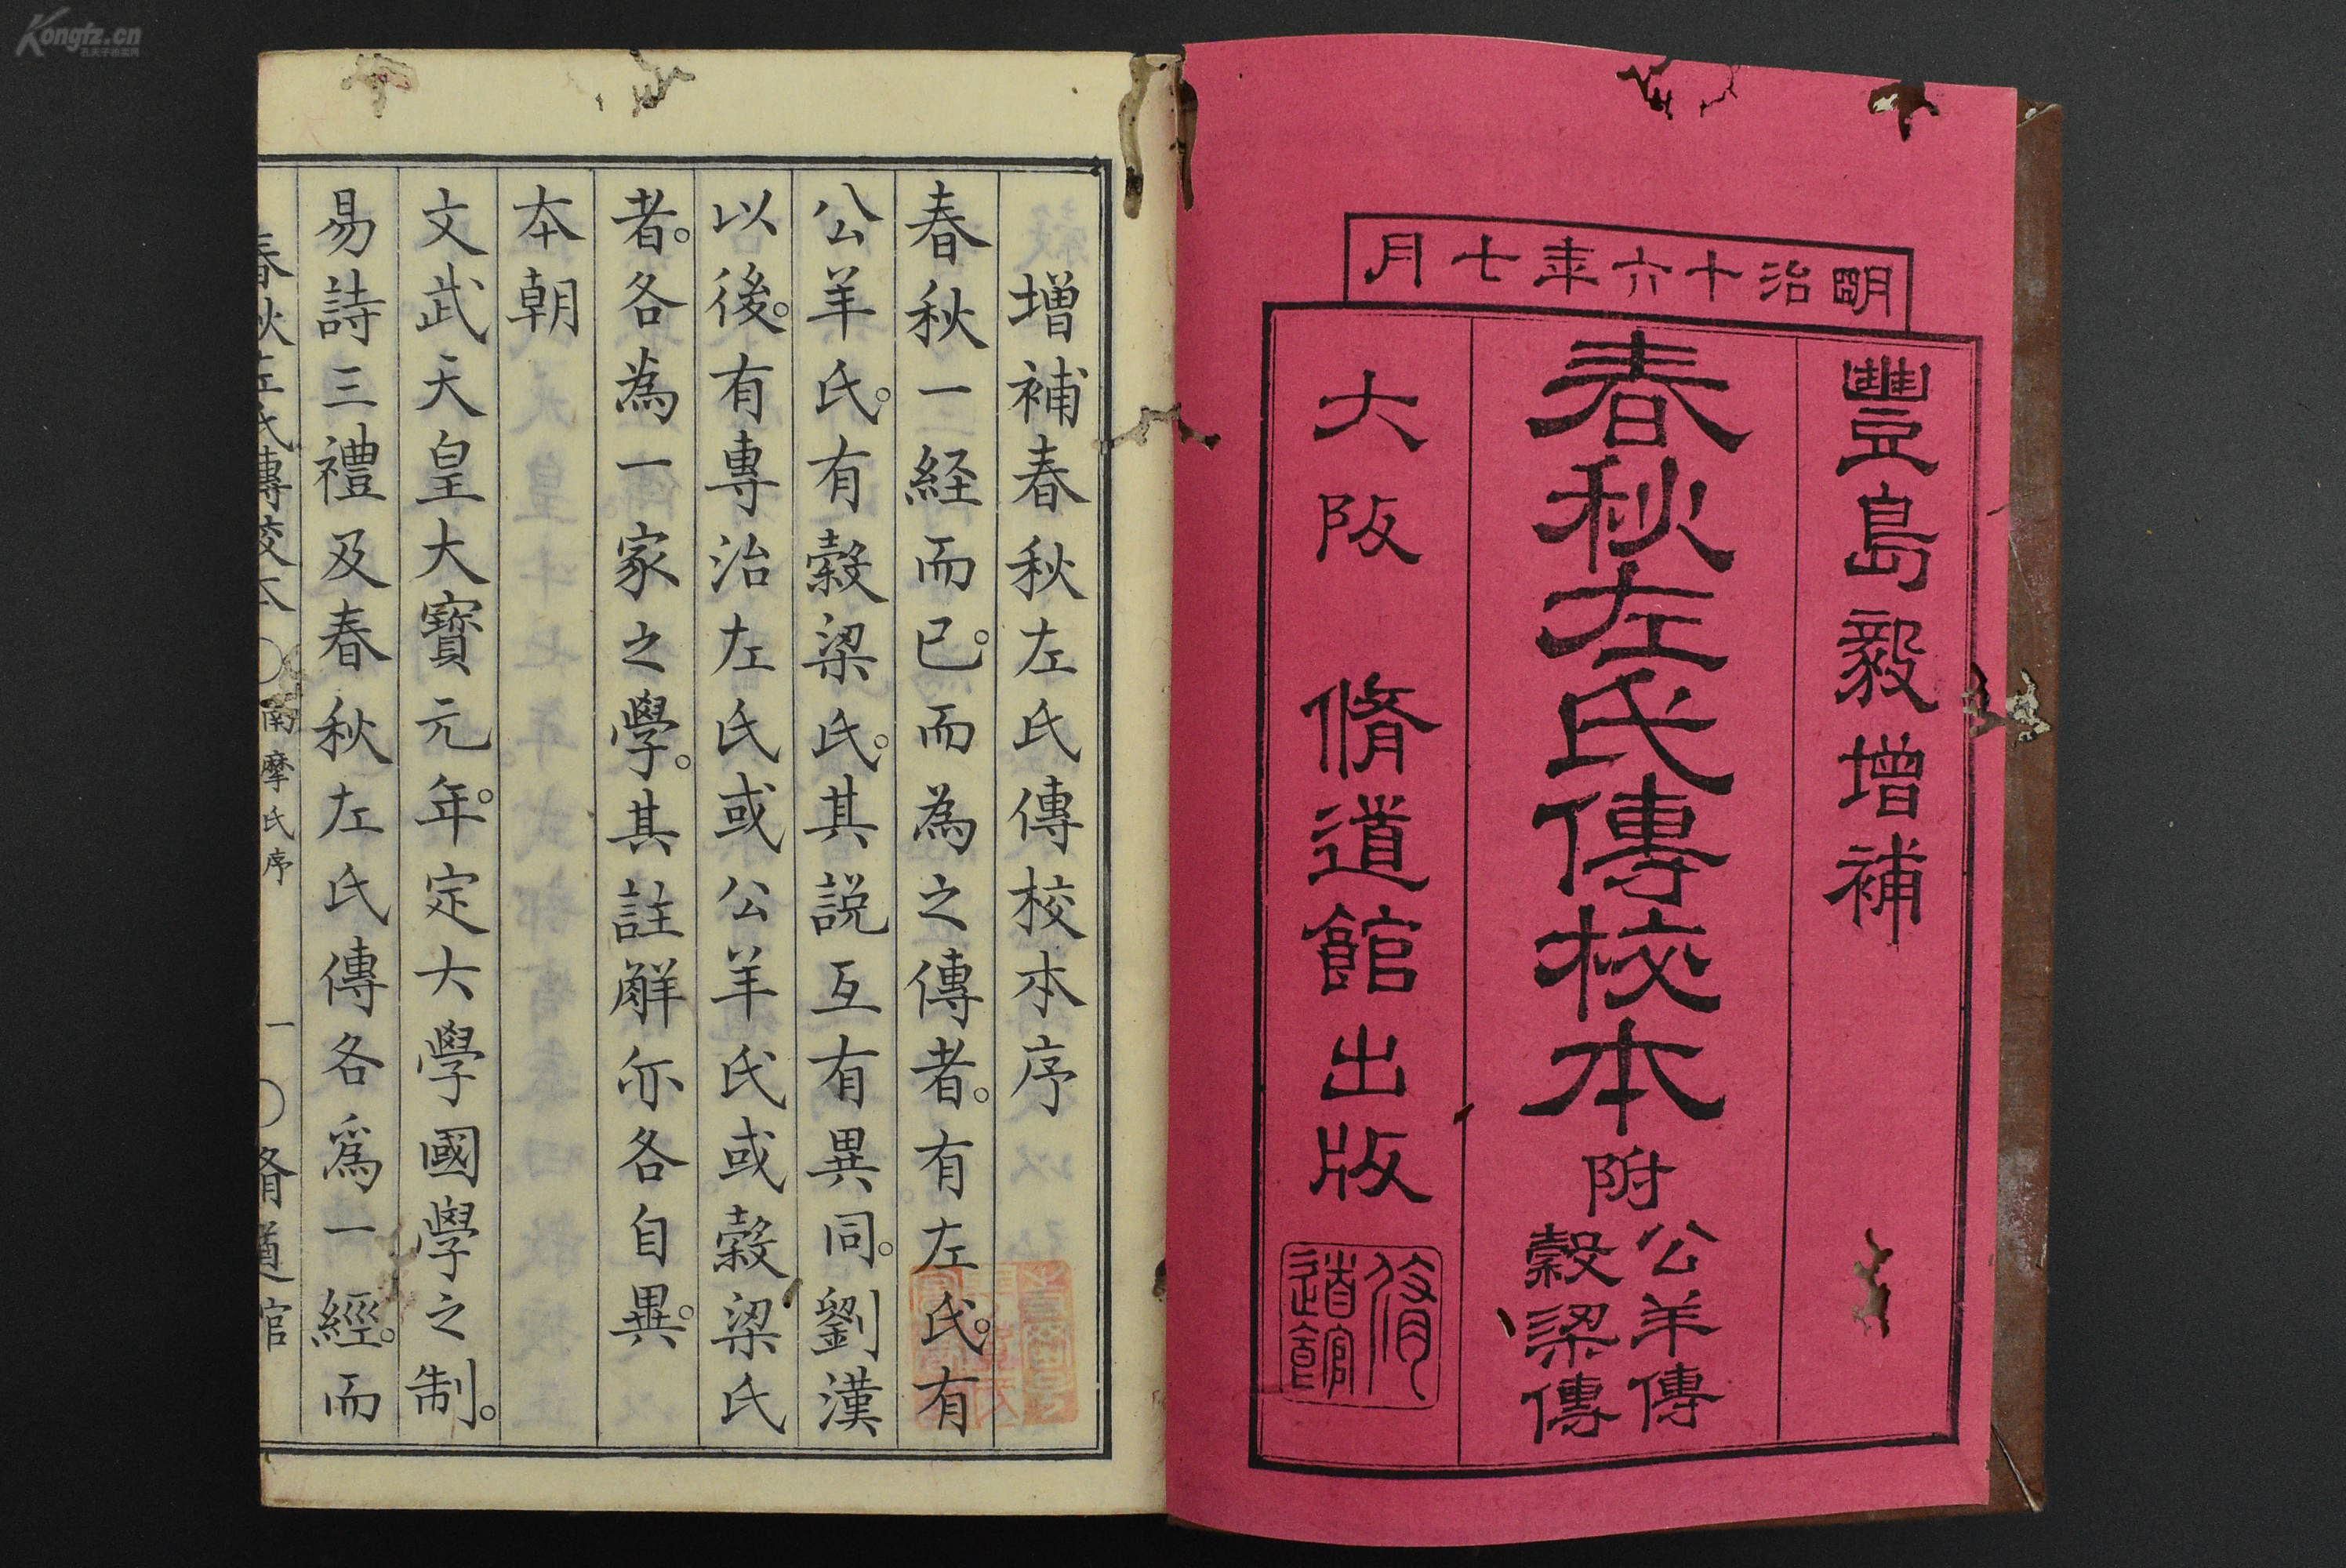 明治十六年七月
豐島毅增補
春秋左氏傳校本附公羊傳穀梁傳
大阪 脩道館出版
脩道館
增補春秋左氏傳校本序
春秋一経而已。而為之傳者。有左氏。有
公羊氏。有穀梁氏。其説互有異同。劉漢
以後。有專治左氏或公羊氏或穀梁氏
者。各為一家之學。其註觧亦各自異。
本朝
文武天皇大寶元年。定大學國學之制。
易詩三禮及春秋左氏傳各爲一經。而
春秋左氏傳校本 〇南摩氏序 一 〇脩道館
Kongfz.cn